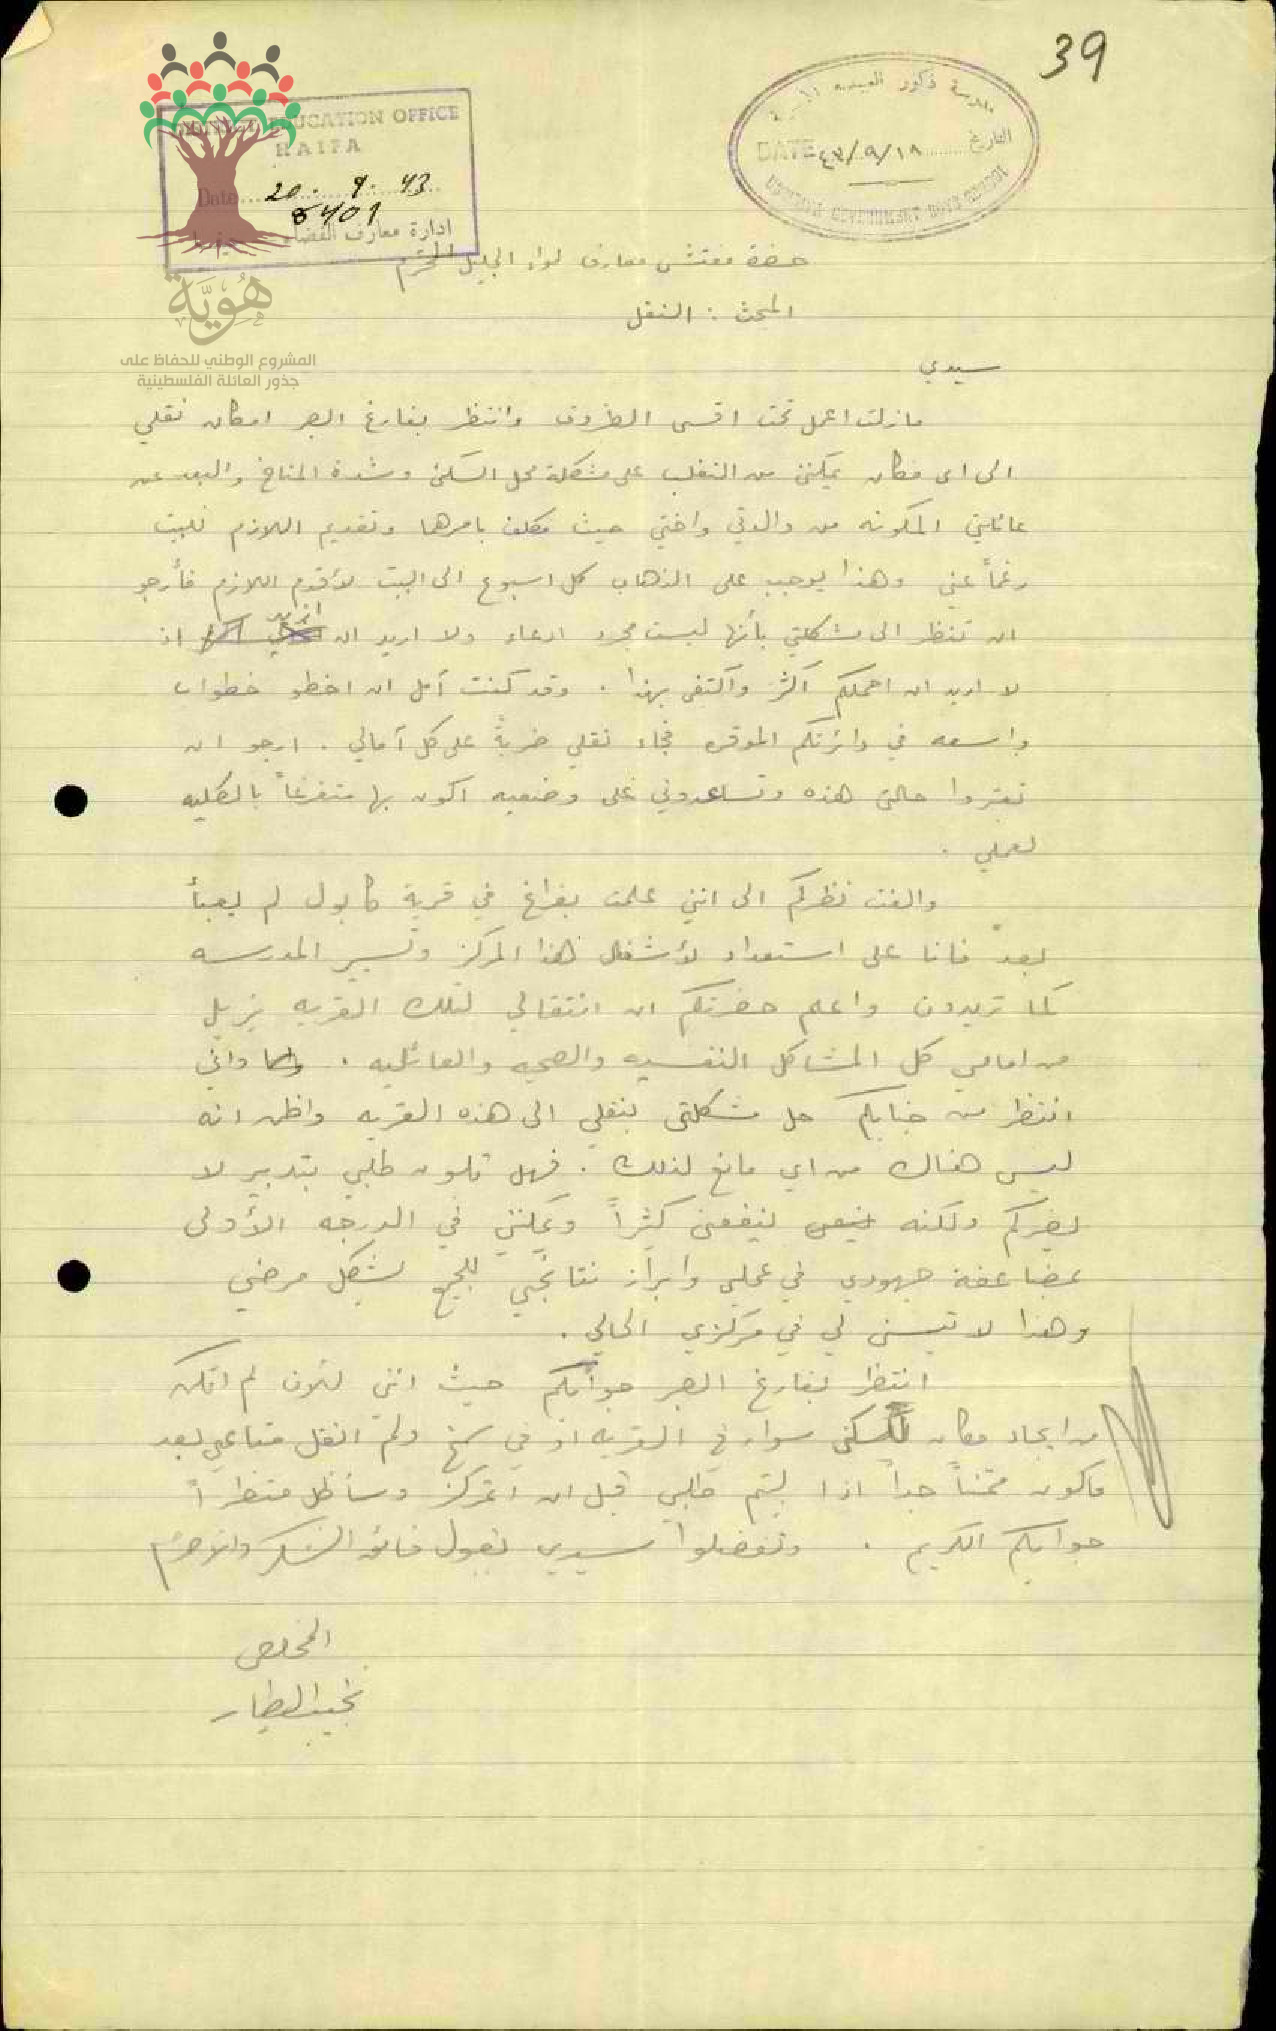 39
مدرسة ذكور العبيديه
DATE ٤٣/٩/١٨ التاريخ
GOVERNMENT BOYS SCHOOL
DISTRICT EDUCATION OFFICE
HAIFA
Date 20. 9. 43
8401
ادارة معارف القضاء
هُوِيَّة
المشروع الوطني للحفاظ على
جذور العائلة الفلسطينية
حضرة مفتش معارف لواء الجليل المحترم
المبحث : النقل
سيدي
مازلت اعمل تحت اقسى الظروف وانتظر بفارغ الصبر امكان نقلي
الى اى مكان يمكنني من التغلب على مشكلة محل السكن وشدة المناخ والبعد عن
عائلتي المكونه من والدتي واختي حيث مكلف بامرهما وتقديم اللازم للبيت
رغماً عني وهذا يوجب على الذهاب كل اسبوع الى البيت لأقدم اللازم فأرجو
ان تنظر الى مشكلتي بأنها ليست مجرد ادعاء ولا اريد ان ازيد اذ
لا اريد ان احملكم اكثر واكتفى بهذا . وقد كنت آمل ان اخطو خطوات
واسعه في دائرتكم الموقره فجاء نقلي ضربةً على كل آمالي . ارجو ان
تعتبروا حالتى هذه وتساعدوني على وضعيه اكون بها متفرغاً بالكليه
لعملي .
والفت نظركم الى انني علمت بفراغ في قرية كابول لم يعبأ
بعد فانا على استعداد لأشغال هذا المركز وتسيير المدرسه
كما تريدون واعلم حضرتكم ان انتقالي لتلك القريه يزيل
من امامي كل المشاكل النفسيه والصحيه والعائليه . واني
انتظر من جنابكم حل مشكلتي بنقلي الى هذه القريه واظن انه
ليس هناك من اي مانع لذلك . فهل تلبون طلبي بتدبير لا
يضركم ولكنه ينفعني كثيراً ويمكنني في الدرجه الأولى
بمضاعفة جهودي في عملي وابراز نتائجي للجميع بشكل مرضي
وهذا لا يتسنى لي في مركزي الحالي .
انتظر بفارغ الصبر جوابكم حيث انني للآن لم اتمكن
من ايجاد مكان للسكنى سواء في القريه او في سمخ ولم انقل متاعي بعد
فاكون ممتناً جداً اذا يتم طلبي قبل ان اتمركز وسأظل منتظراً
جوابكم الكريم . وتفضلوا سيدي بقبول فائق الشكر والاحترام
المخلص
نجيب العطار